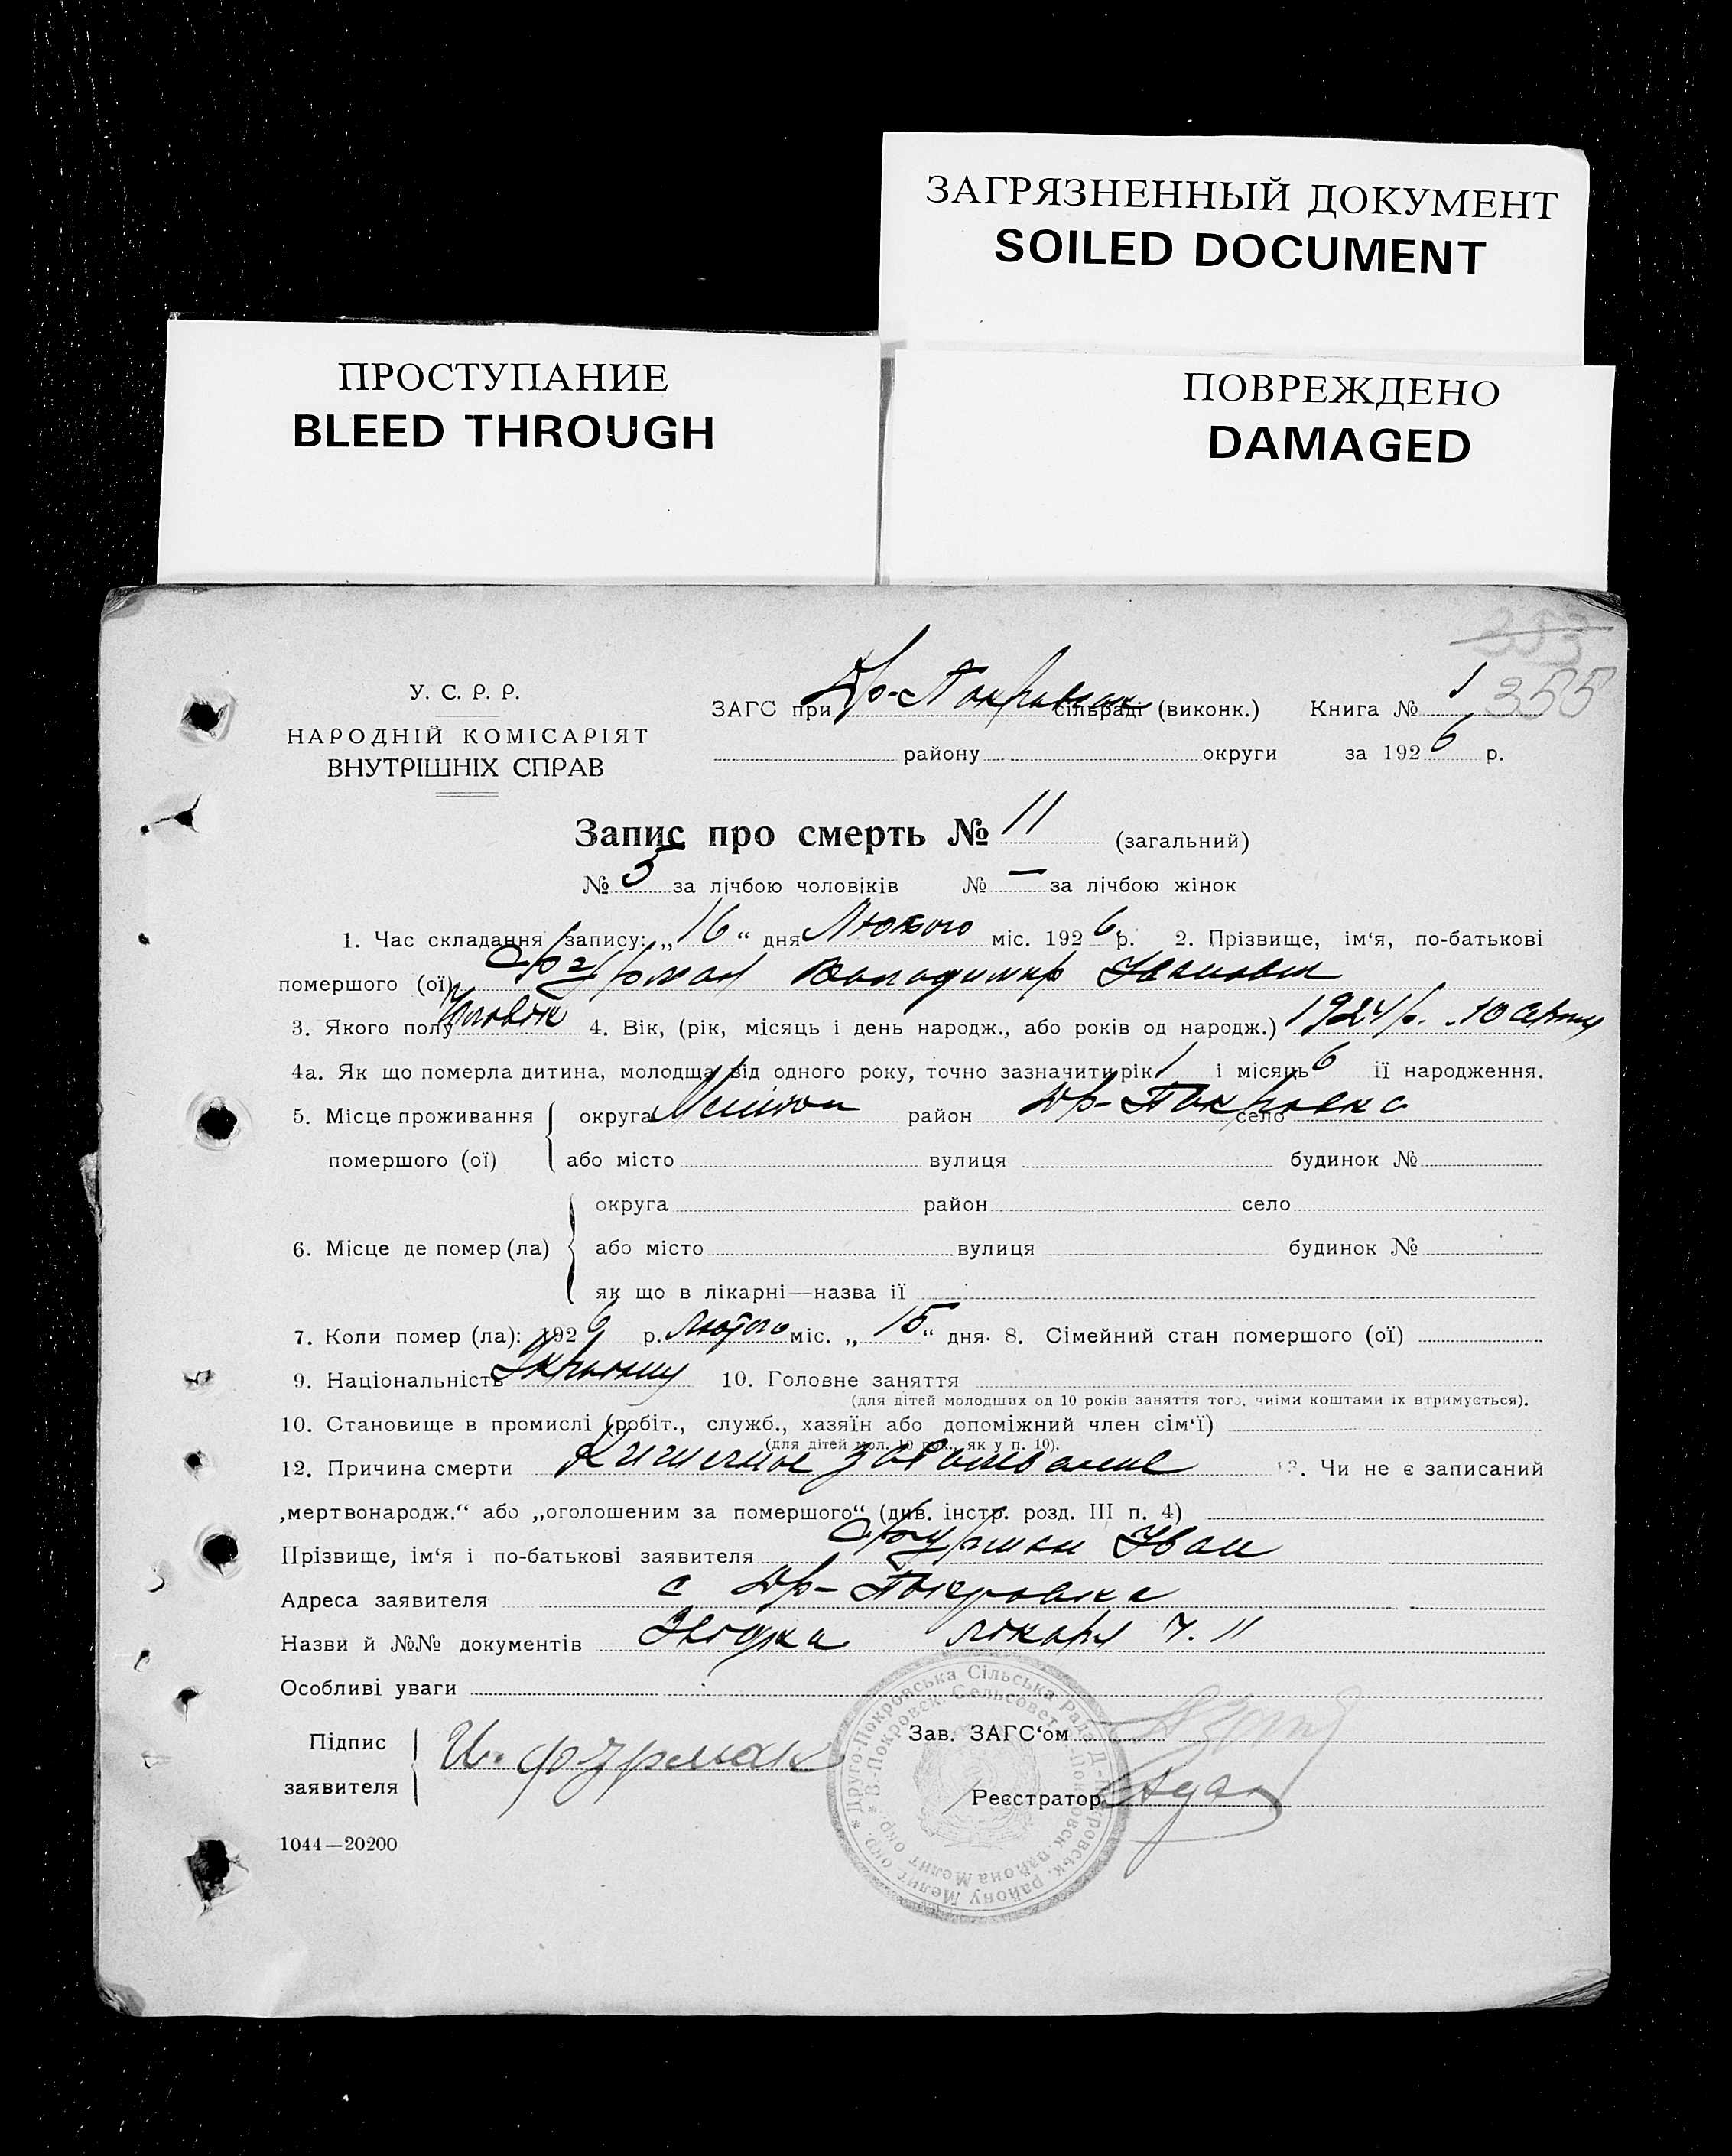 ЗАГРЯЗНЕННЫЙ ДОКУМЕНТ
SOILED DOCUMENT
ПРОСТУПАНИЕ
BLEED THROUGH
ПОВРЕЖДЕНО
DAMAGED
353
355
У. С. Р. Р.
НАРОДНІЙ КОМІСАРІЯТ
ВНУТРІШНІХ СПРАВ
ЗАГС при Др-Покровськ сільраді (виконк.) Книга № 1
району округи за 1926 р.
Запис про смерть № 11 (загальний)
№ 5 за лічбою чоловіків № — за лічбою жінок
1. Час складання запису: „16“ дня Лютого міс. 1926 р. 2. Прізвище, ім‘я, по-батькові
помершого (ої) Фурман Володимир Іванович
3. Якого полу Чоловік 4. Вік, (рік, місяць і день народж., або років од народж.) 1924 р. 10
4а. Як що померла дитина, молодща від одного року, точно зазначити рік 1 і місяць 6 її народження.
5. Місце проживання округа Меліт район Др-Покровка село
помершого (ої) або місто вулиця будинок №
округа район село
6. Місце де помер (ла) або місто вулиця будинок №
як що в лікарні—назва її
7. Коли помер (ла): 1926 р. Лютого міс. „15“ дня. 8. Сімейний стан помершого (ої)
9. Національність 10. Головне заняття
(для дітей молодших од 10 років заняття того, чиїми коштами їх втримується).
10. Становище в промислі (робіт., служб., хазяїн або допоміжний член сім‘ї)
(для дітей мол. 10 рок., як у п. 10).
12. Причина смерти Кишечное заболевание 13. Чи не є записаний
„мертвонародж.“ або „оголошеним за помершого“ (див. інстр. розд. III п. 4)
Прізвище, ім‘я і по-батькові заявителя Фурман Іван
Адреса заявителя с Др-Покровка
Назви й №№ документів Звідка лікаря Ч. 11
Особливі уваги
Підпис
заявителя И. Фурман
Зав. ЗАГС‘ом
Реєстратор
Друго-Покровська Сільська Рада Д-Покровськ. району Меліт окр.
В.-Покровск. Сельсовет В.-Покровск района Мелит окр.
1044—20200